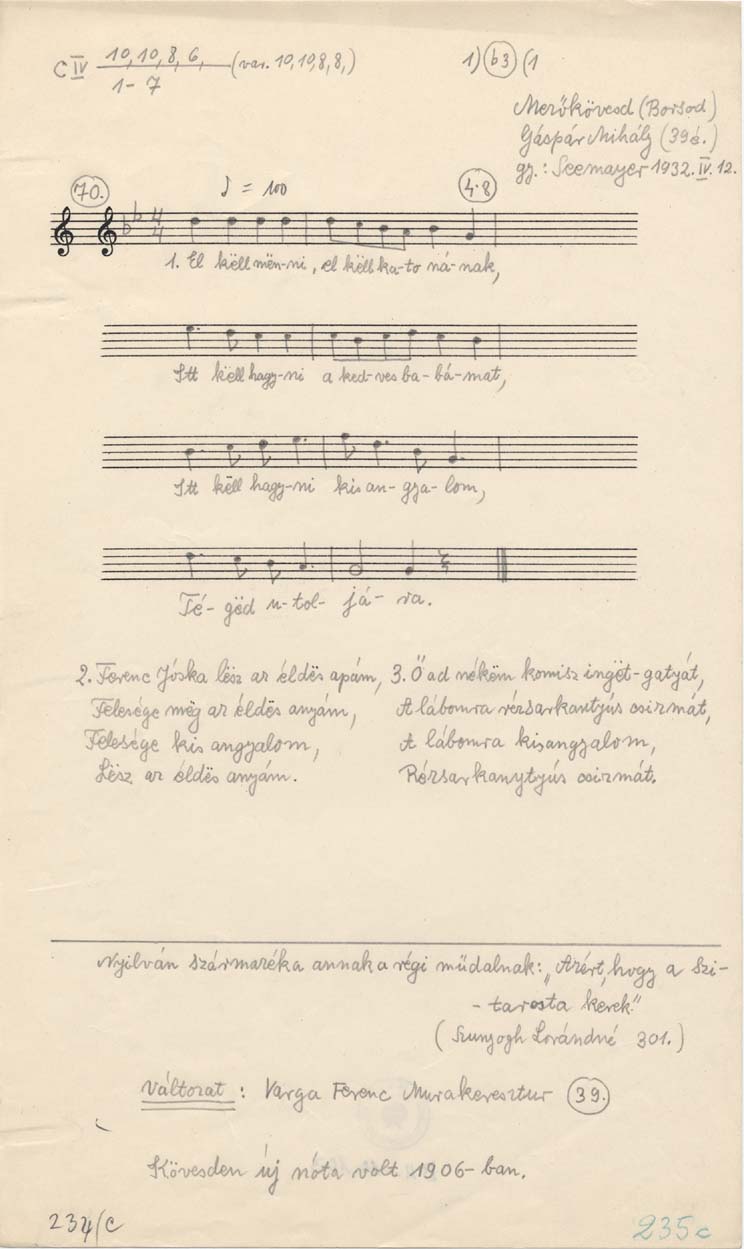 C IV 10, 10, 8, 6, (var. 10, 10, 8, 8,) 1) (b3) (1
1-7
Mezőkövesd (Borsod)
Gáspár Mihály (39 é.)
gy.: Seemayer 1932. IV. 12.
70. ♩ = 100 4·8
4
4
1. El këll mën-ni, el këll ka-to ná-nak,
Itt këll hagy-ni a ked-ves ba-bá-mat,
Itt këll hagy-ni kis an-gya-lom,
Té-gëd u-tol-já-ra.
2. Ferenc Jóska lësz az éldës apám,
Felesége mëg az éldës anyám,
Felesége kis angyalom,
Lësz az éldës anyám.
3. Ő ad nékëm komisz ingët-gatyát,
A lábomra rézsarkantyús csizmát,
A lábomra kisangyalom,
Rézsarkanytyús csizmát.
Nyilván származéka annak a régi műdalnak: „Azért, hogy a Szi-
-tarosta kerek."
(Szunyogh Lorándné 301.)
Változat: Varga Ferenc Murakeresztur 39.
Kövesden új nóta volt 1906-ban.
234/C
235c